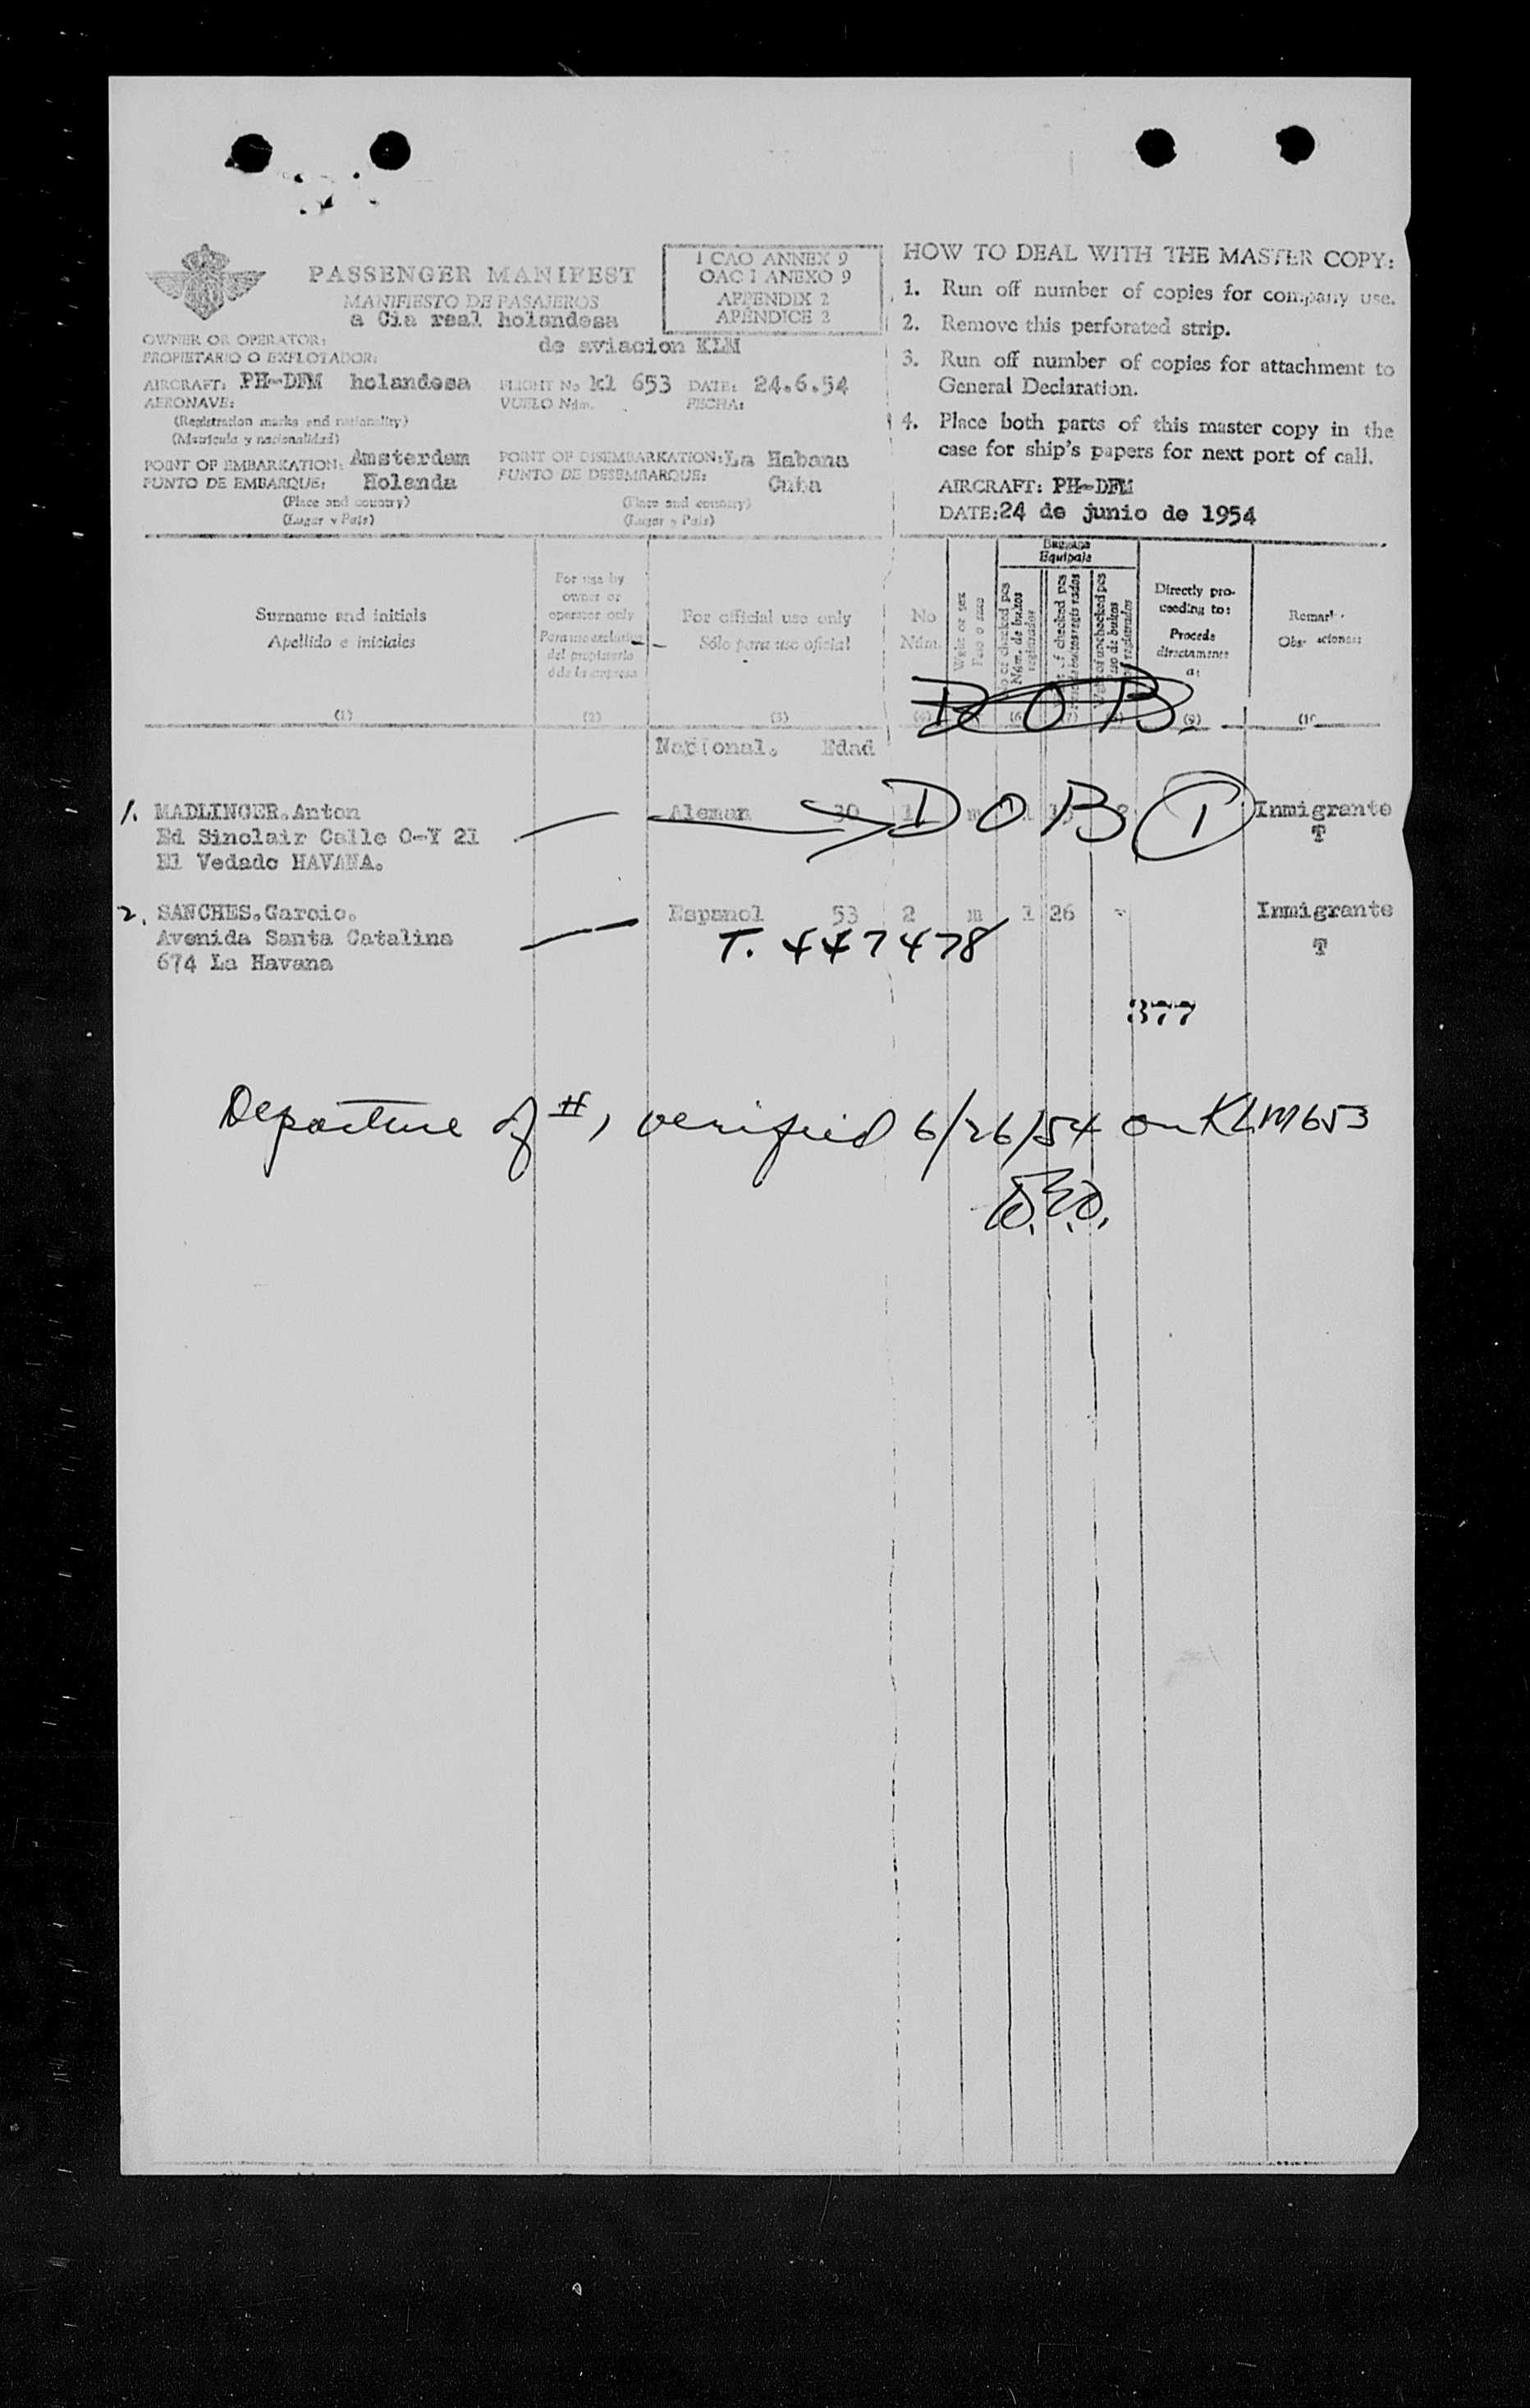 PASSENGER MANIFEST
MANIFIESTO DE PASAJEROS
a Cia real holandesa
de aviacion KLM
I CAO ANNEX 9
OAC I ANEXO 9
APPENDIX 2
APÉNDICE 2
OWNER OR OPERATOR:
PROPIETARIO O EXPLOTADOR:
AIRCRAFT: PH-DFM holandesa FLIGHT No kl 653 DATE: 24.6.54
AERONAVE: VUELO Núm. FECHA:
(Registration marks and nationality)
(Matrícula y nacionalidad)
POINT OF EMBARKATION: Amsterdam POINT OF DISEMBARKATION: La Habana
PUNTO DE EMBARQUE: Holanda PUNTO DE DESEMBARQUE: Cuba
(Place and country) (Place and country)
(Lugar y País) (Lugar y País)
HOW TO DEAL WITH THE MASTER COPY:
1. Run off number of copies for company use.
2. Remove this perforated strip.
3. Run off number of copies for attachment to
General Declaration.
4. Place both parts of this master copy in the
case for ship's papers for next port of call.
AIRCRAFT: PH-DFM
DATE: 24 de junio de 1954
Surname and initials
Apellido e iniciales
(1)
For use by
owner or
operator only
Para uso exclusivo
del propietario
ó de la empresa
(2)
For official use only
Sólo para uso oficial
(3)
No
Núm.
Wght or sex
Peso o sexo
Baggage
Equipaje
of checked pcs
Núm. de bultos
registrados
of checked pcs
bultos registrados
of unchecked pcs
de bultos
registrados
Directly pro-
ceeding to:
Procede
directamente
a:
(9)
Remar
Obs aciones:
DOB.
Nacional. Edad
1. MADLINGER.Anton Aleman 30 1 m DOB 1 Inmigrante
Ed Sinclair Calle O-Y 21 T
El Vedado HAVANA.
2. SANCHES.Garcio. Espanol 53 2 m 1 26 - Inmigrante
Avenida Santa Catalina T. 447478 T
674 La Havana
377
Departure of #1 verified 6/26/54 on KLM653